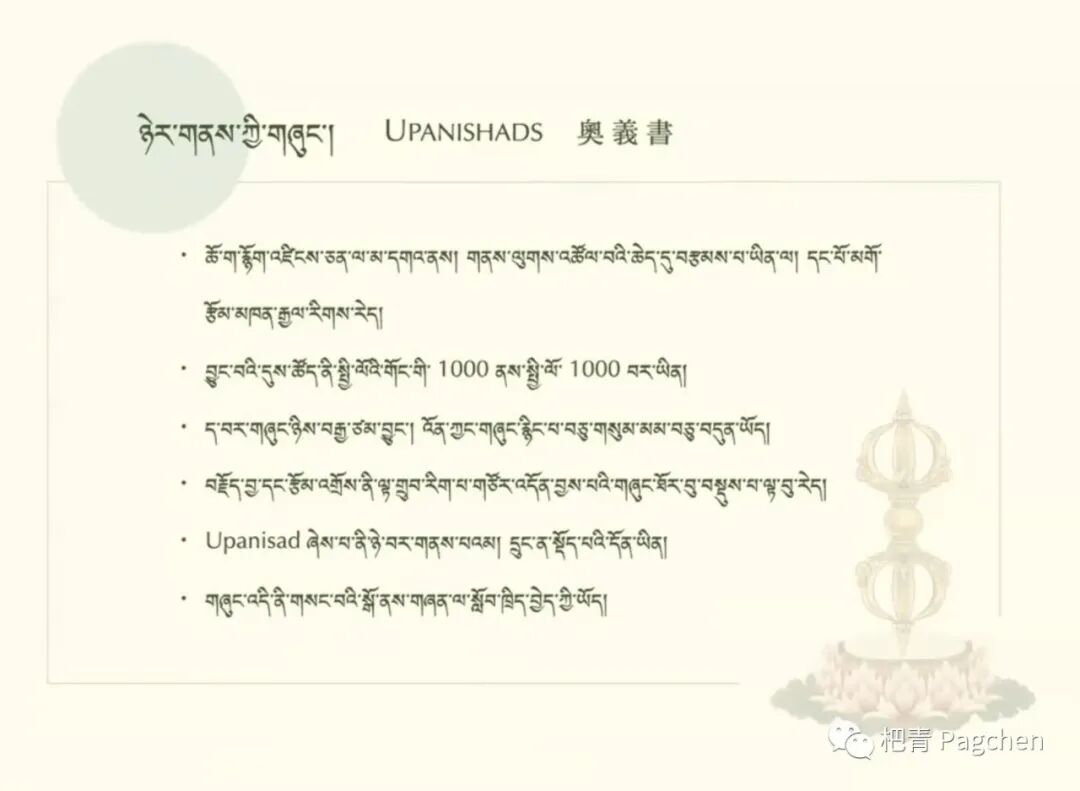 ཉེར་གནས་ཀྱི་གཞུང་། UPANISHADS 奧義書
• ཆོ་ག་རྙོག་འཛིངས་ཅན་ལ་མ་དགའ་ནས། གནས་ལུགས་འཚོལ་བའི་ཆེད་དུ་བརྩམས་པ་ཡིན་ལ། དང་པོ་མགོ་
རྩོམ་མཁན་རྒྱལ་རིགས་རེད།
• བྱུང་བའི་དུས་ཚོད་ནི་སྤྱི་ལོའི་གོང་གི་ 1000 ནས་སྤྱི་ལོ་ 1000 བར་ཡིན།
• ད་བར་གཞུང་ཉིས་བརྒྱ་ཙམ་བྱུང་། འོན་ཀྱང་གཞུང་རྙིང་པ་བཅུ་གསུམ་མམ་བཅུ་བདུན་ཡོད།
• བརྗོད་བྱ་དང་རྩོམ་འགྲོས་ནི་ལྟ་གྲུབ་རིག་པ་གཙོར་འདོན་བྱས་པའི་གཞུང་ཐོར་བུ་བསྡུས་པ་ལྟ་བུ་རེད།
• Upanisad ཞེས་པ་ནི་ཉེ་བར་གནས་པའམ། དྲུང་ན་སྡོད་པའི་དོན་ཡིན།
• གཞུང་འདི་ནི་གསང་བའི་སྒོ་ནས་གཞན་ལ་སློབ་ཁྲིད་བྱེད་ཀྱི་ཡོད།
杷青 Pagchen